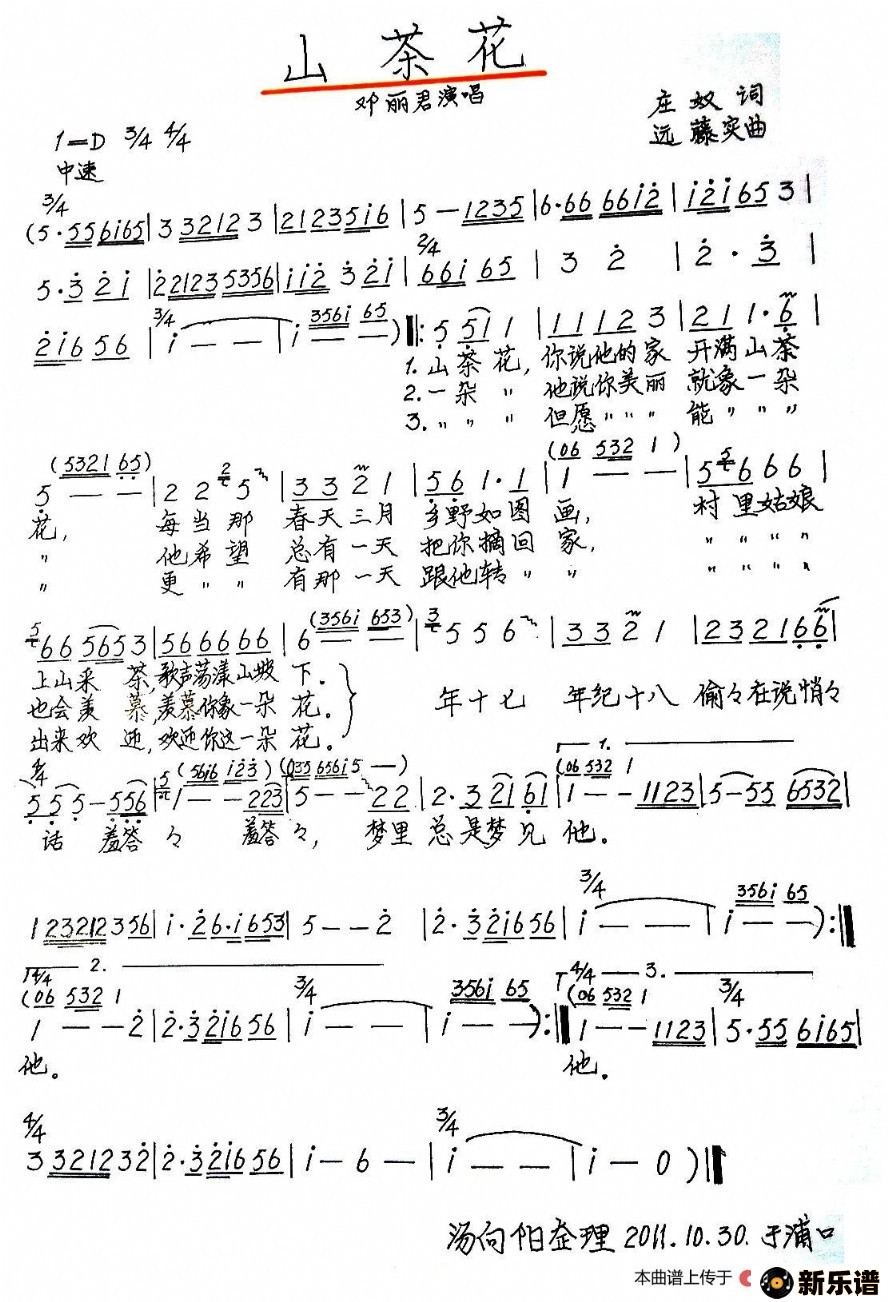 山茶花
邓丽君演唱
庄奴 词
远藤实曲
1=D 3/4 4/4
中速
3/4
(5·55 6i65 | 3 3212 3 | 2123 5i6 | 5 — 1235 | 6·66 66i2 | i2i65 3 |
2/4
5·3 2i | 22123 5356 | ii2 3 2i | 66i 65 | 3 2 | 2· 3 |
3/4 356i 65
2i6 56 | i — — | i — — ) ‖: 5 5i 1 | 1 1 1 2 3 | 2 1 1·6 |
1.山茶花,你说他的家 开满山茶
2.一朵 〃 他说你美丽 就象一朵
3.〃 〃 〃 但愿〃〃〃 能〃〃〃
(5321 65) (06 532 1)
5 — — | 2 2 5 | 3 3 2 1 | 5 6 1·1 | 1 — — | 5 6 6 6 |
花, 每当那 春天三月 乡野如图 画, 村里姑娘
〃 他希望 总有一天 把你摘回 家, 〃〃〃〃
〃 更〃〃 有那一天 跟他转〃 〃 〃〃〃〃
(356i 653)
66 5653 | 56 66 66 | 6 — — | 5 5 6 | 33 2 1 | 2321 66 |
上山采 茶,歌声荡漾山坡 下.
也会羡 慕,羡慕你象一朵 花.
出来欢 迎,欢迎你这一朵 花.
年十七 年纪十八 偷々在说悄々
4/4 (56i6 i23) (035 656i5 —) 1. (06 532 1
5 5 5 — 556 | 1 — — 223 | 5 — — 22 | 2·3 21 61 | 1 — — 1123 | 5 — 55 6532 |
话 羞答々 羞答々, 梦里 总是梦见 他.
3/4 356i 65
1 23212 356 | i·26·i653 | 5 — — 2 | 2·32i656 | i — — | i — — ) :‖
4/4 2. 4/4 3.
(06 532 1 3/4 356i 65 (06 532 1 3/4
1 — — 2 | 2·32i656 | i — — | i — — ) :‖ 1 — — 1123 | 5·55 6i65 |
他. 他.
4/4 3/4
3 3212 32 | 2·32i656 | i — 6 — | i — — | i — 0 ) ‖
汤向阳整理 2011.10.30.于浦口
本曲谱上传于 新乐谱